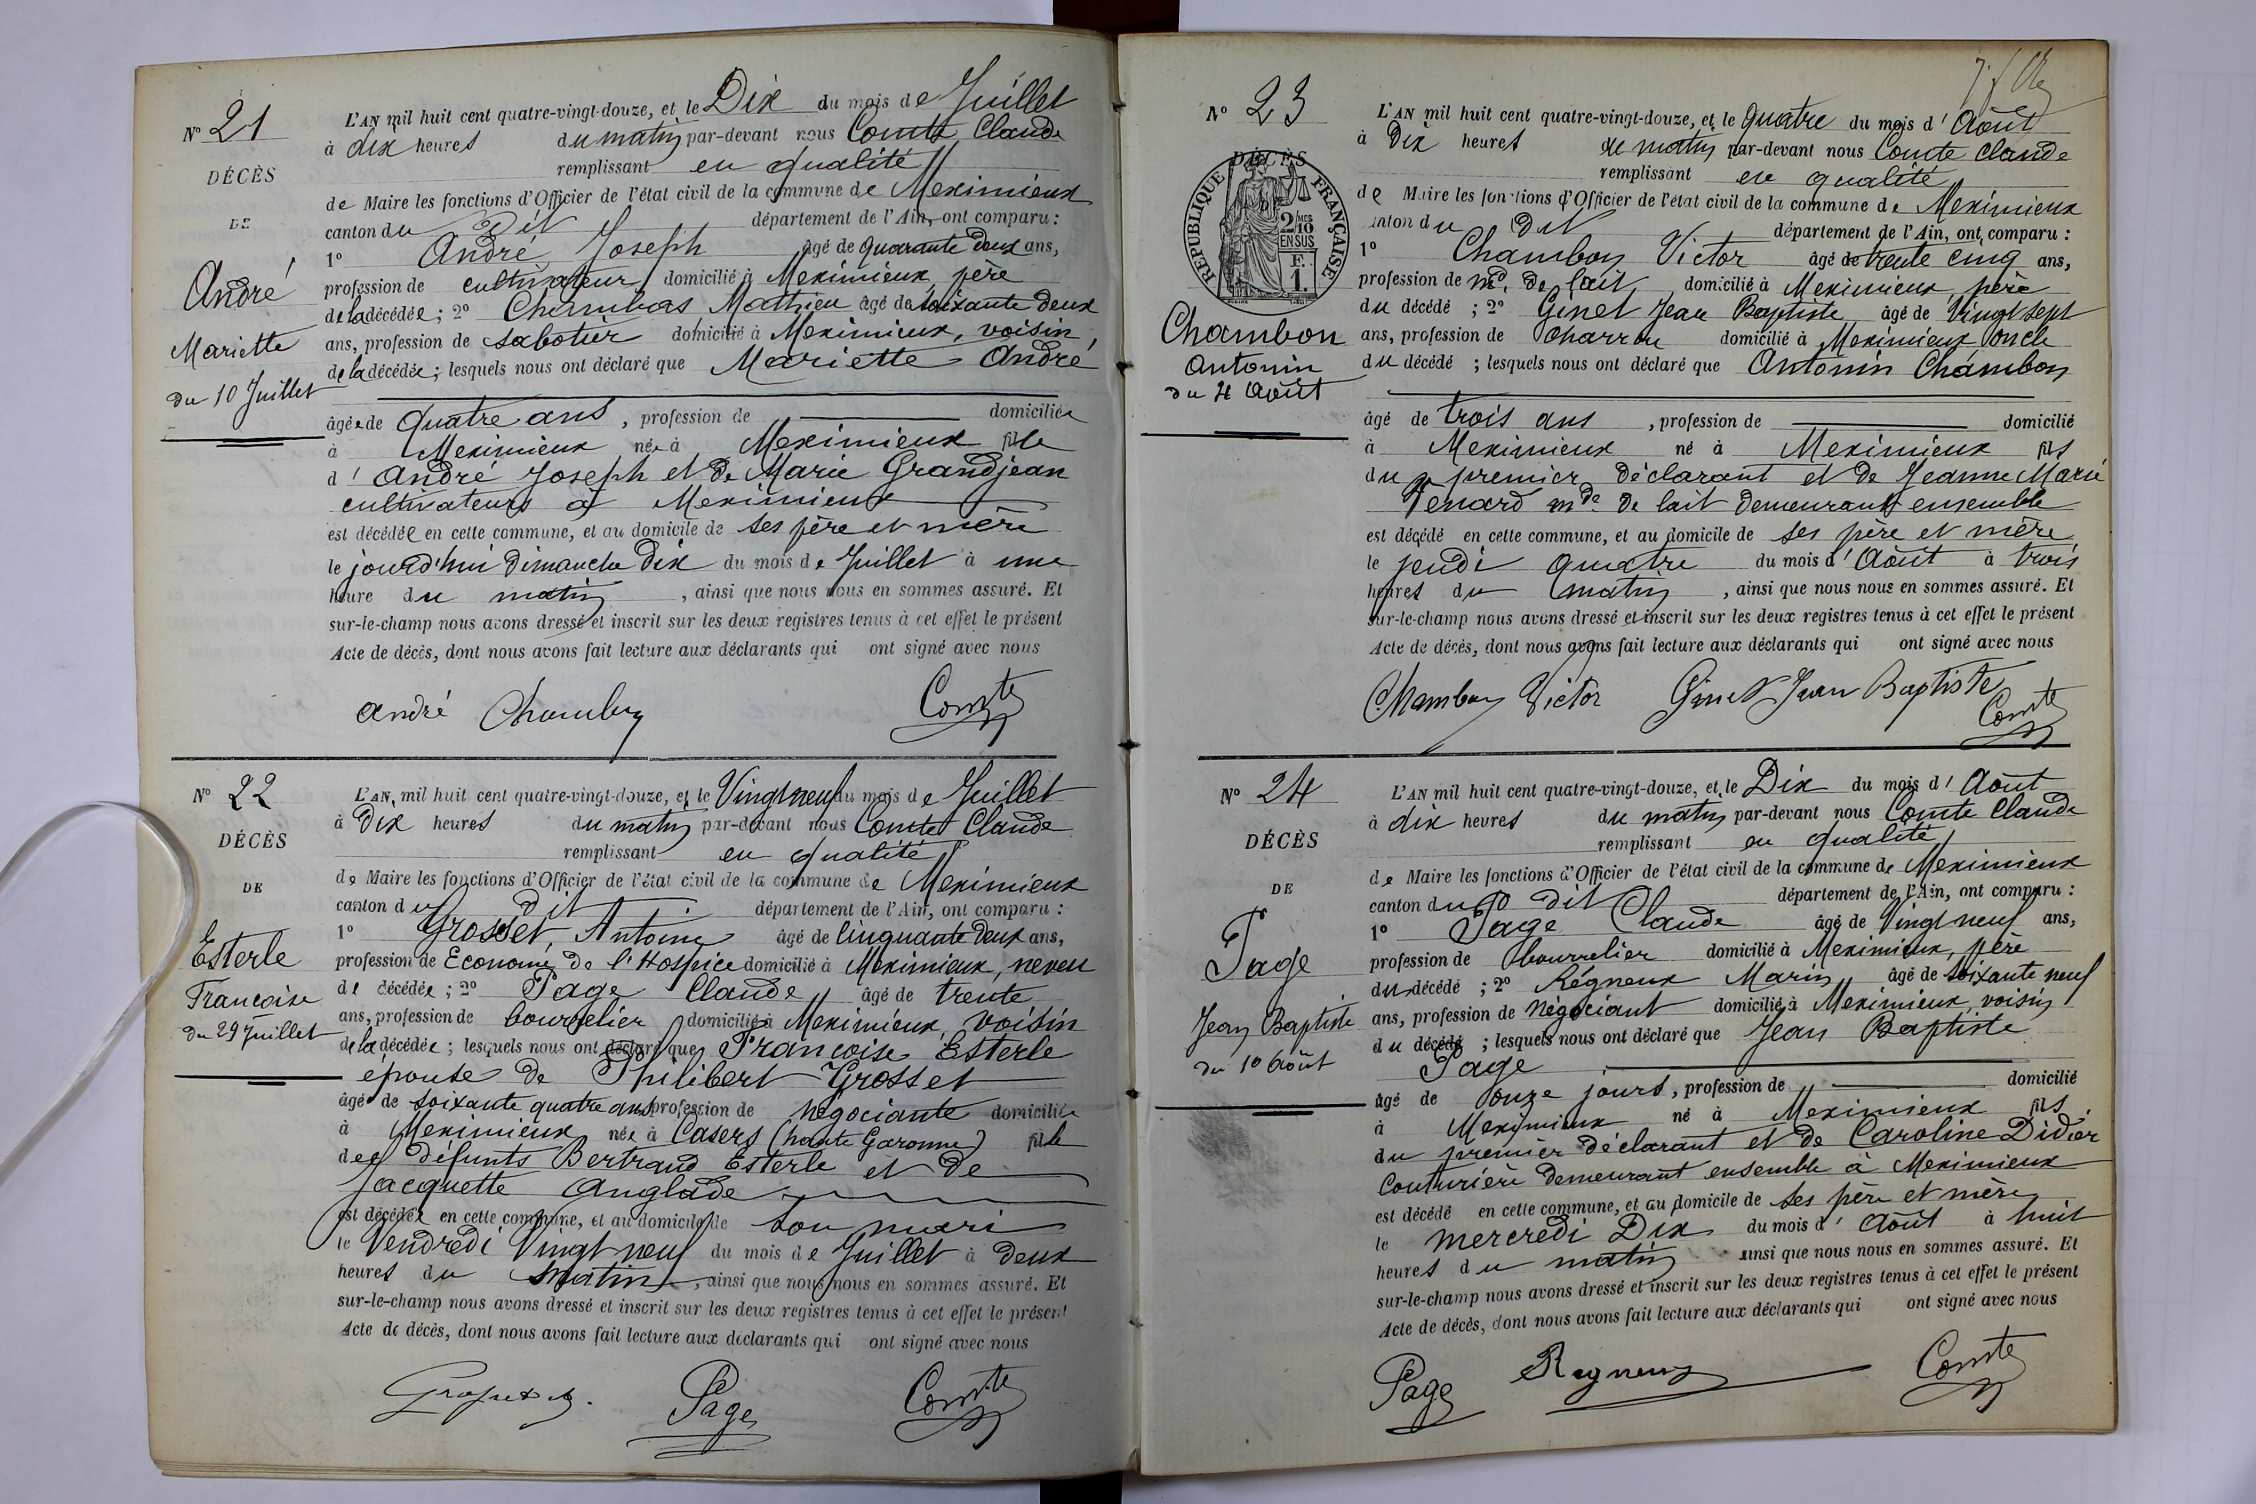 N° 21
DÉCÈS
DE
André
Mariette
du 10 Juillet
L'AN mil huit cent quatre-vingt-douze, et le Dix du mois de Juillet
à dix heures du matin par-devant nous Comte Claude
remplissant en qualité
de Maire les fonctions d'Officier de l'état civil de la commune de Meximieux
canton du Dit département de l'Ain, ont comparu :
1° André Joseph âgé de quarante deux ans,
profession de cultivateur domicilié à Meximieux, père
de la décédée ; 2° Chambas Mathieu âgé de soixante deux
ans, profession de sabotier domicilié à Meximieux, voisin
de la décédée ; lesquels nous ont déclaré que Mariette André
âgée de quatre ans , profession de domiciliée
à Meximieux née à Meximieux fille
d' André Joseph et de Marie Grandjean
cultivateurs à Meximieux
est décédée en cette commune, et au domicile de ses père et mère
le jourd'hui Dimanche Dix du mois de Juillet à une
heure du matin , ainsi que nous nous en sommes assuré. Et
sur-le-champ nous avons dressé et inscrit sur les deux registres tenus à cet effet le présent
Acte de décès, dont nous avons fait lecture aux déclarants qui ont signé avec nous
André Comte
N° 22
DÉCÈS
DE
Esterle
Françoise
du 29 Juillet
L'AN mil huit cent quatre-vingt-douze, et le Vingt neuf du mois de Juillet
à Dix heures du matin par-devant nous Comte Claude
remplissant en qualité
de Maire les fonctions d'Officier de l'état civil de la commune de Meximieux
canton du Dit département de l'Ain, ont comparu :
1° Grosset Antoine âgé de Cinquante deux ans,
profession de Econome de l'Hospice domicilié à Meximieux, neveu
de décédée ; 2° Page Claude âgé de trente
ans, profession de bourrelier domicilié à Meximieux, voisin
de la décédée ; lesquels nous ont déclaré que Françoise Esterle
épouse de Philibert Grosset
âgé de soixante quatre ans profession de négociante domiciliée
à Meximieux née à Casers (haute Garonne) fille
des défunts Bertrand Esterle et de
Jacquette Anglade
est décédée en cette commune, et au domicile de son mari
le Vendredi Vingt neuf du mois de Juillet à deux
heures du matin , ainsi que nous nous en sommes assuré. Et
sur-le-champ nous avons dressé et inscrit sur les deux registres tenus à cet effet le présent
Acte de décès, dont nous avons fait lecture aux déclarants qui ont signé avec nous
Page Comte
N° 23
DÉCÈS
RÉPUBLIQUE FRANÇAISE
2/10 EN SUS
F. 1.
Chambon
Antonin
du 4 Août
L'AN mil huit cent quatre-vingt-douze, et le Quatre du mois d' Août
à Dix heures du matin par-devant nous Comte Claude
remplissant en qualité
de Maire les fonctions d'Officier de l'état civil de la commune de Meximieux
canton du Dit département de l'Ain, ont comparu :
1° Chambon Victor âgé de trente cinq ans,
profession de md. de lait domicilié à Meximieux, père
du décédé ; 2° Ginet Jean Baptiste âgé de Vingt sept
ans, profession de charron domicilié à Meximieux oncle
du décédé ; lesquels nous ont déclaré que Antonin Chambon
âgé de trois ans , profession de domicilié
à Meximieux né à Meximieux fils
du premier déclarant et de Jeanne Marie
Venard mde de lait demeurant ensemble
est décédé en cette commune, et au domicile de ses père et mère
le jeudi quatre du mois d' Août à trois
heures du matin , ainsi que nous nous en sommes assuré. Et
sur-le-champ nous avons dressé et inscrit sur les deux registres tenus à cet effet le présent
Acte de décès, dont nous avons fait lecture aux déclarants qui ont signé avec nous
Chambon Victor Ginet Jean Baptiste
Comte
N° 24
DÉCÈS
DE
Page
Jean Baptiste
du 10 Août
L'AN mil huit cent quatre-vingt-douze, et le Dix du mois d' Août
à dix heures du matin par-devant nous Comte Claude
remplissant en qualité
de Maire les fonctions d'Officier de l'état civil de la commune de Meximieux
canton du Dit département de l'Ain, ont comparu :
1° Page Claude âgé de Vingt neuf ans,
profession de bourrelier domicilié à Meximieux, père
du décédé ; 2° Régneux Marin âgé de soixante neuf
ans, profession de négociant domicilié à Meximieux, voisin
du décédé ; lesquels nous ont déclaré que Jean Baptiste
Page
âgé de onze jours , profession de domicilié
à Meximieux né à Meximieux fils
du premier déclarant et de Caroline Didier
couturière demeurant ensemble à Meximieux
est décédé en cette commune, et au domicile de ses père et mère
le mercredi Dix du mois d' Août à huit
heures du matin ainsi que nous nous en sommes assuré. Et
sur-le-champ nous avons dressé et inscrit sur les deux registres tenus à cet effet le présent
Acte de décès, dont nous avons fait lecture aux déclarants qui ont signé avec nous
Page Regneux Comte